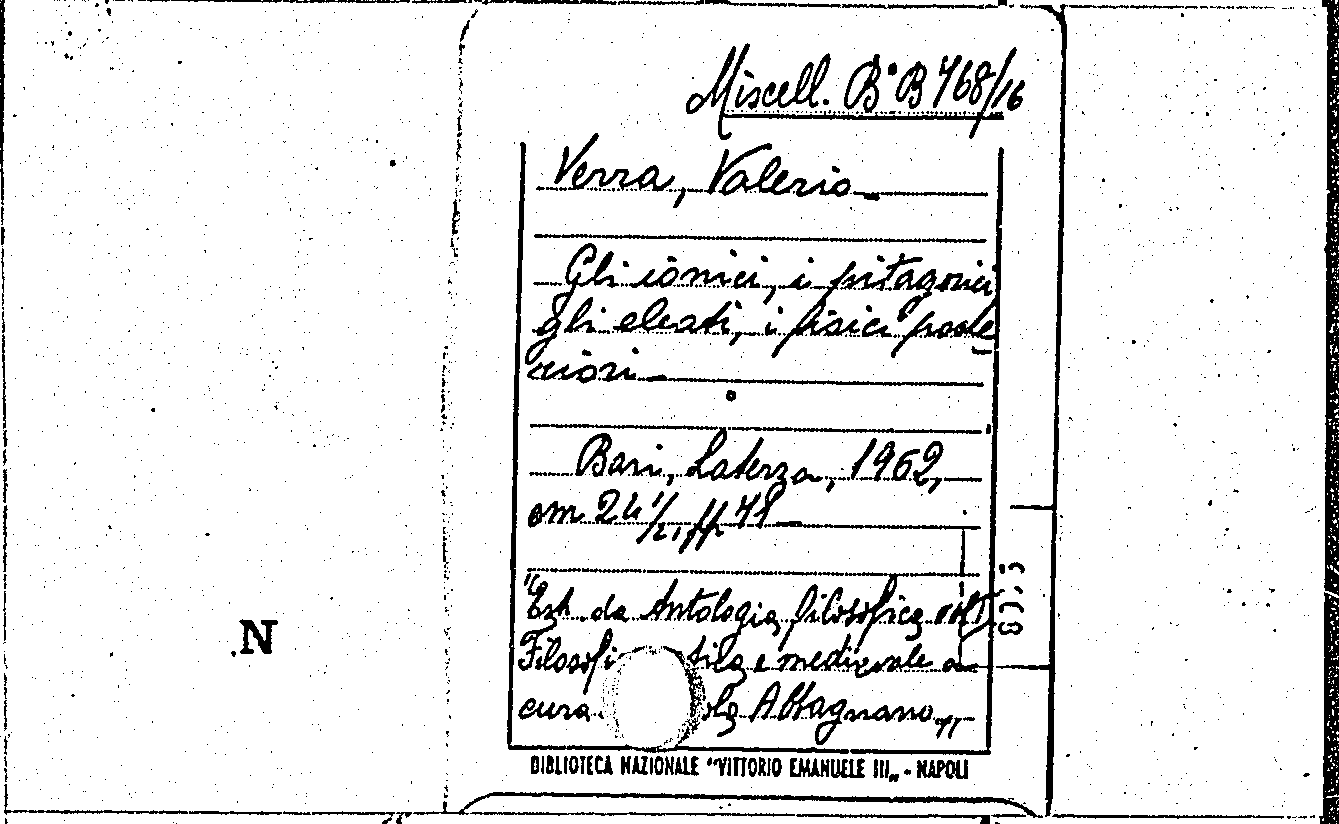 Miscell. B° B 768/16
Verra, Valerio
Gli ionici, i pitagorici
gli eleati, i fisici poste
riori
Bari, Laterza, 1962,
cm 24 1/2, pp 71
"Estr. da Antologia filosofica vol I
Filosofi e medievale a
cura Abbagnano"
N
BIBLIOTECA NAZIONALE "VITTORIO EMANUELE III„ - NAPOLI